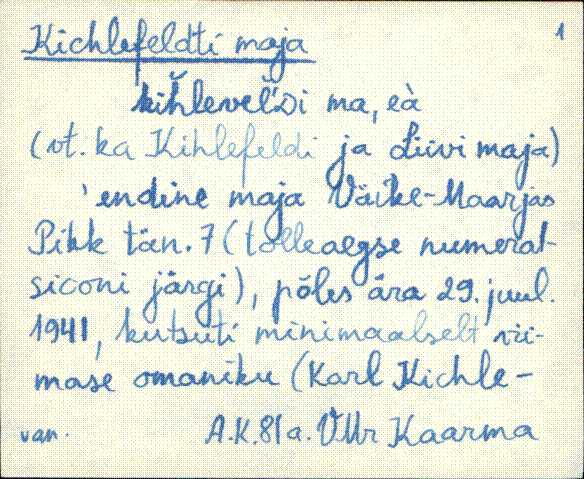 1
Kichlefeldti maja
kiȟlevel'Di ma, eà
(vt. ka Kihlefeldi ja Liivi maja)
'endine maja Väike-Maarjas
Pikk tän. 7 (tolleaegse numerat-
siooni järgi), põles ära 29. juul.
1941, kutsuti minimaalselt vii-
mase omaniku (Karl Kichle-
van. A.K. 81 a. VMr Kaarma